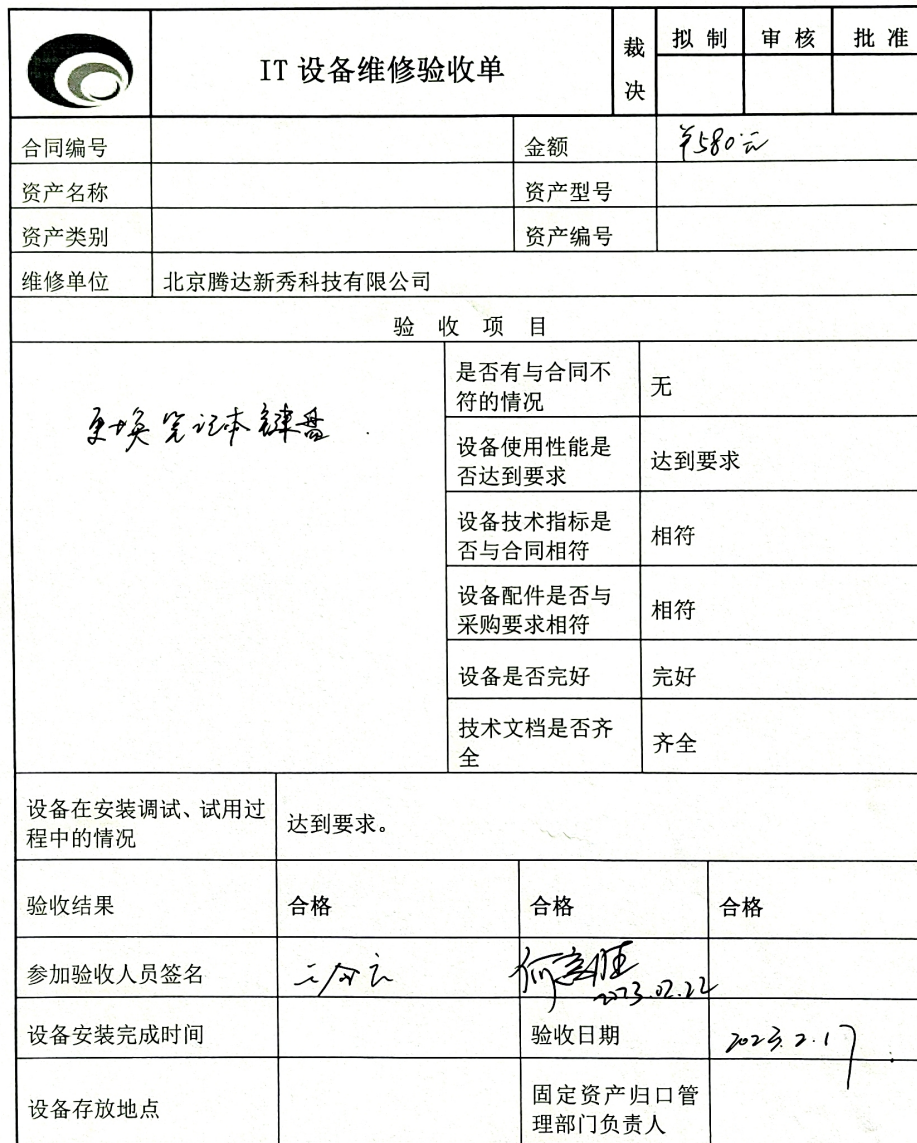 IT 设备维修验收单
裁决
拟 制
审 核
批 准
合同编号
金额
¥580元
资产名称
资产型号
资产类别
资产编号
维修单位
北京腾达新秀科技有限公司
验 收 项 目
更换笔记本键盘
是否有与合同不
符的情况
无
设备使用性能是
否达到要求
达到要求
设备技术指标是
否与合同相符
相符
设备配件是否与
采购要求相符
相符
设备是否完好
完好
技术文档是否齐
全
齐全
设备在安装调试、试用过
程中的情况
达到要求。
验收结果
合格
合格
合格
参加验收人员签名
2023.02.22
设备安装完成时间
验收日期
2023.2.17
设备存放地点
固定资产归口管
理部门负责人